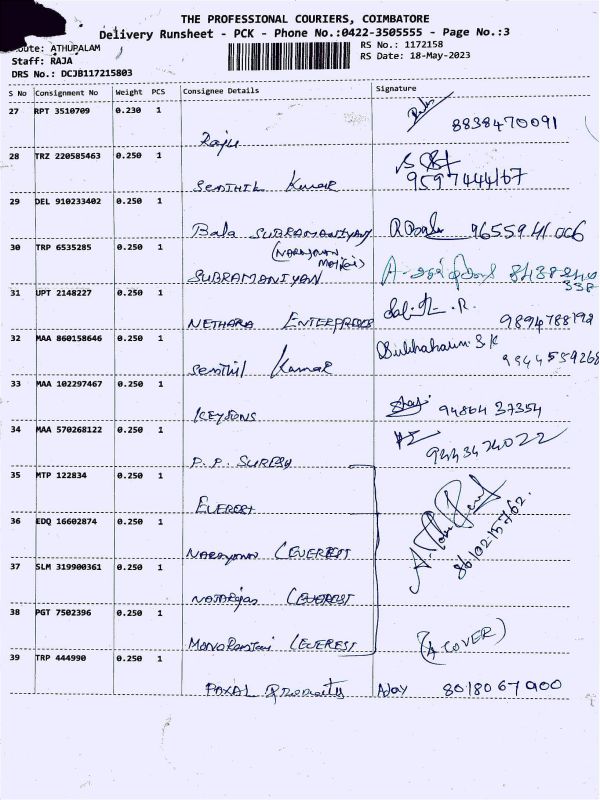 THE PROFESSIONAL COURIERS, COIMBATORE
Delivery Runsheet - PCK - Phone No.:0422-3505555 - Page No.:3
ATHUPALAM RS No.: 1172158
Staff: RAJA RS Date: 18-May-2023
DRS No.: DCJB117215803
S No Consignment No Weight PCS Consignee Details Signature
27 RPT 3510709 0.230 1
Raju 8838470091
28 TRZ 220585463 0.250 1
SENTHIL Kumar 9597444167
29 DEL 910233402 0.250 1
Bala SUBRAMANIYAN R Bala 9655941006
30 TRP 6535285 0.250 1
(NARAYANAN
SUBRAMANIYAN
338
31 UPT 2148227 0.250 1
NETHARA ENTERPRISES 9894788192
32 MAA 860158646 0.250 1
Senthil Kumar S K 9344559268
33 MAA 102297467 0.250 1
KEYSONS 94864 37354
34 MAA 570268122 0.250 1
P. P. SURESH
35 MTP 122834 0.250 1
EVEREST
36 EDQ 16602874 0.250 1
NARAYANAN (EVEREST
8610215762
37 SLM 319900361 0.250 1
NATARAJAN (EVEREST
38 PGT 7502396 0.250 1
(EVEREST (4 COVER)
39 TRP 444990 0.250 1
Ajay 8018067900